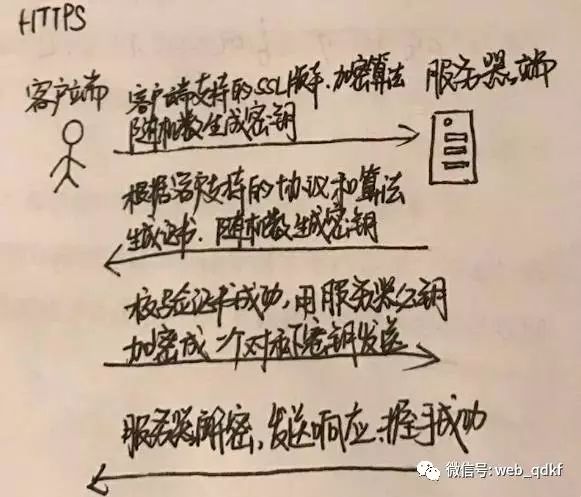 HTTPS
客户端
客户端支持的SSL版本.加密算法
随机数生成密钥
服务器端
根据客户支持的协议和算法
生成证书.随机数生成密钥
校验证书成功,用服务器公钥
加密成一个对称密钥发送
服务器解密,发送响应.握手成功
微信号: web_qdkf